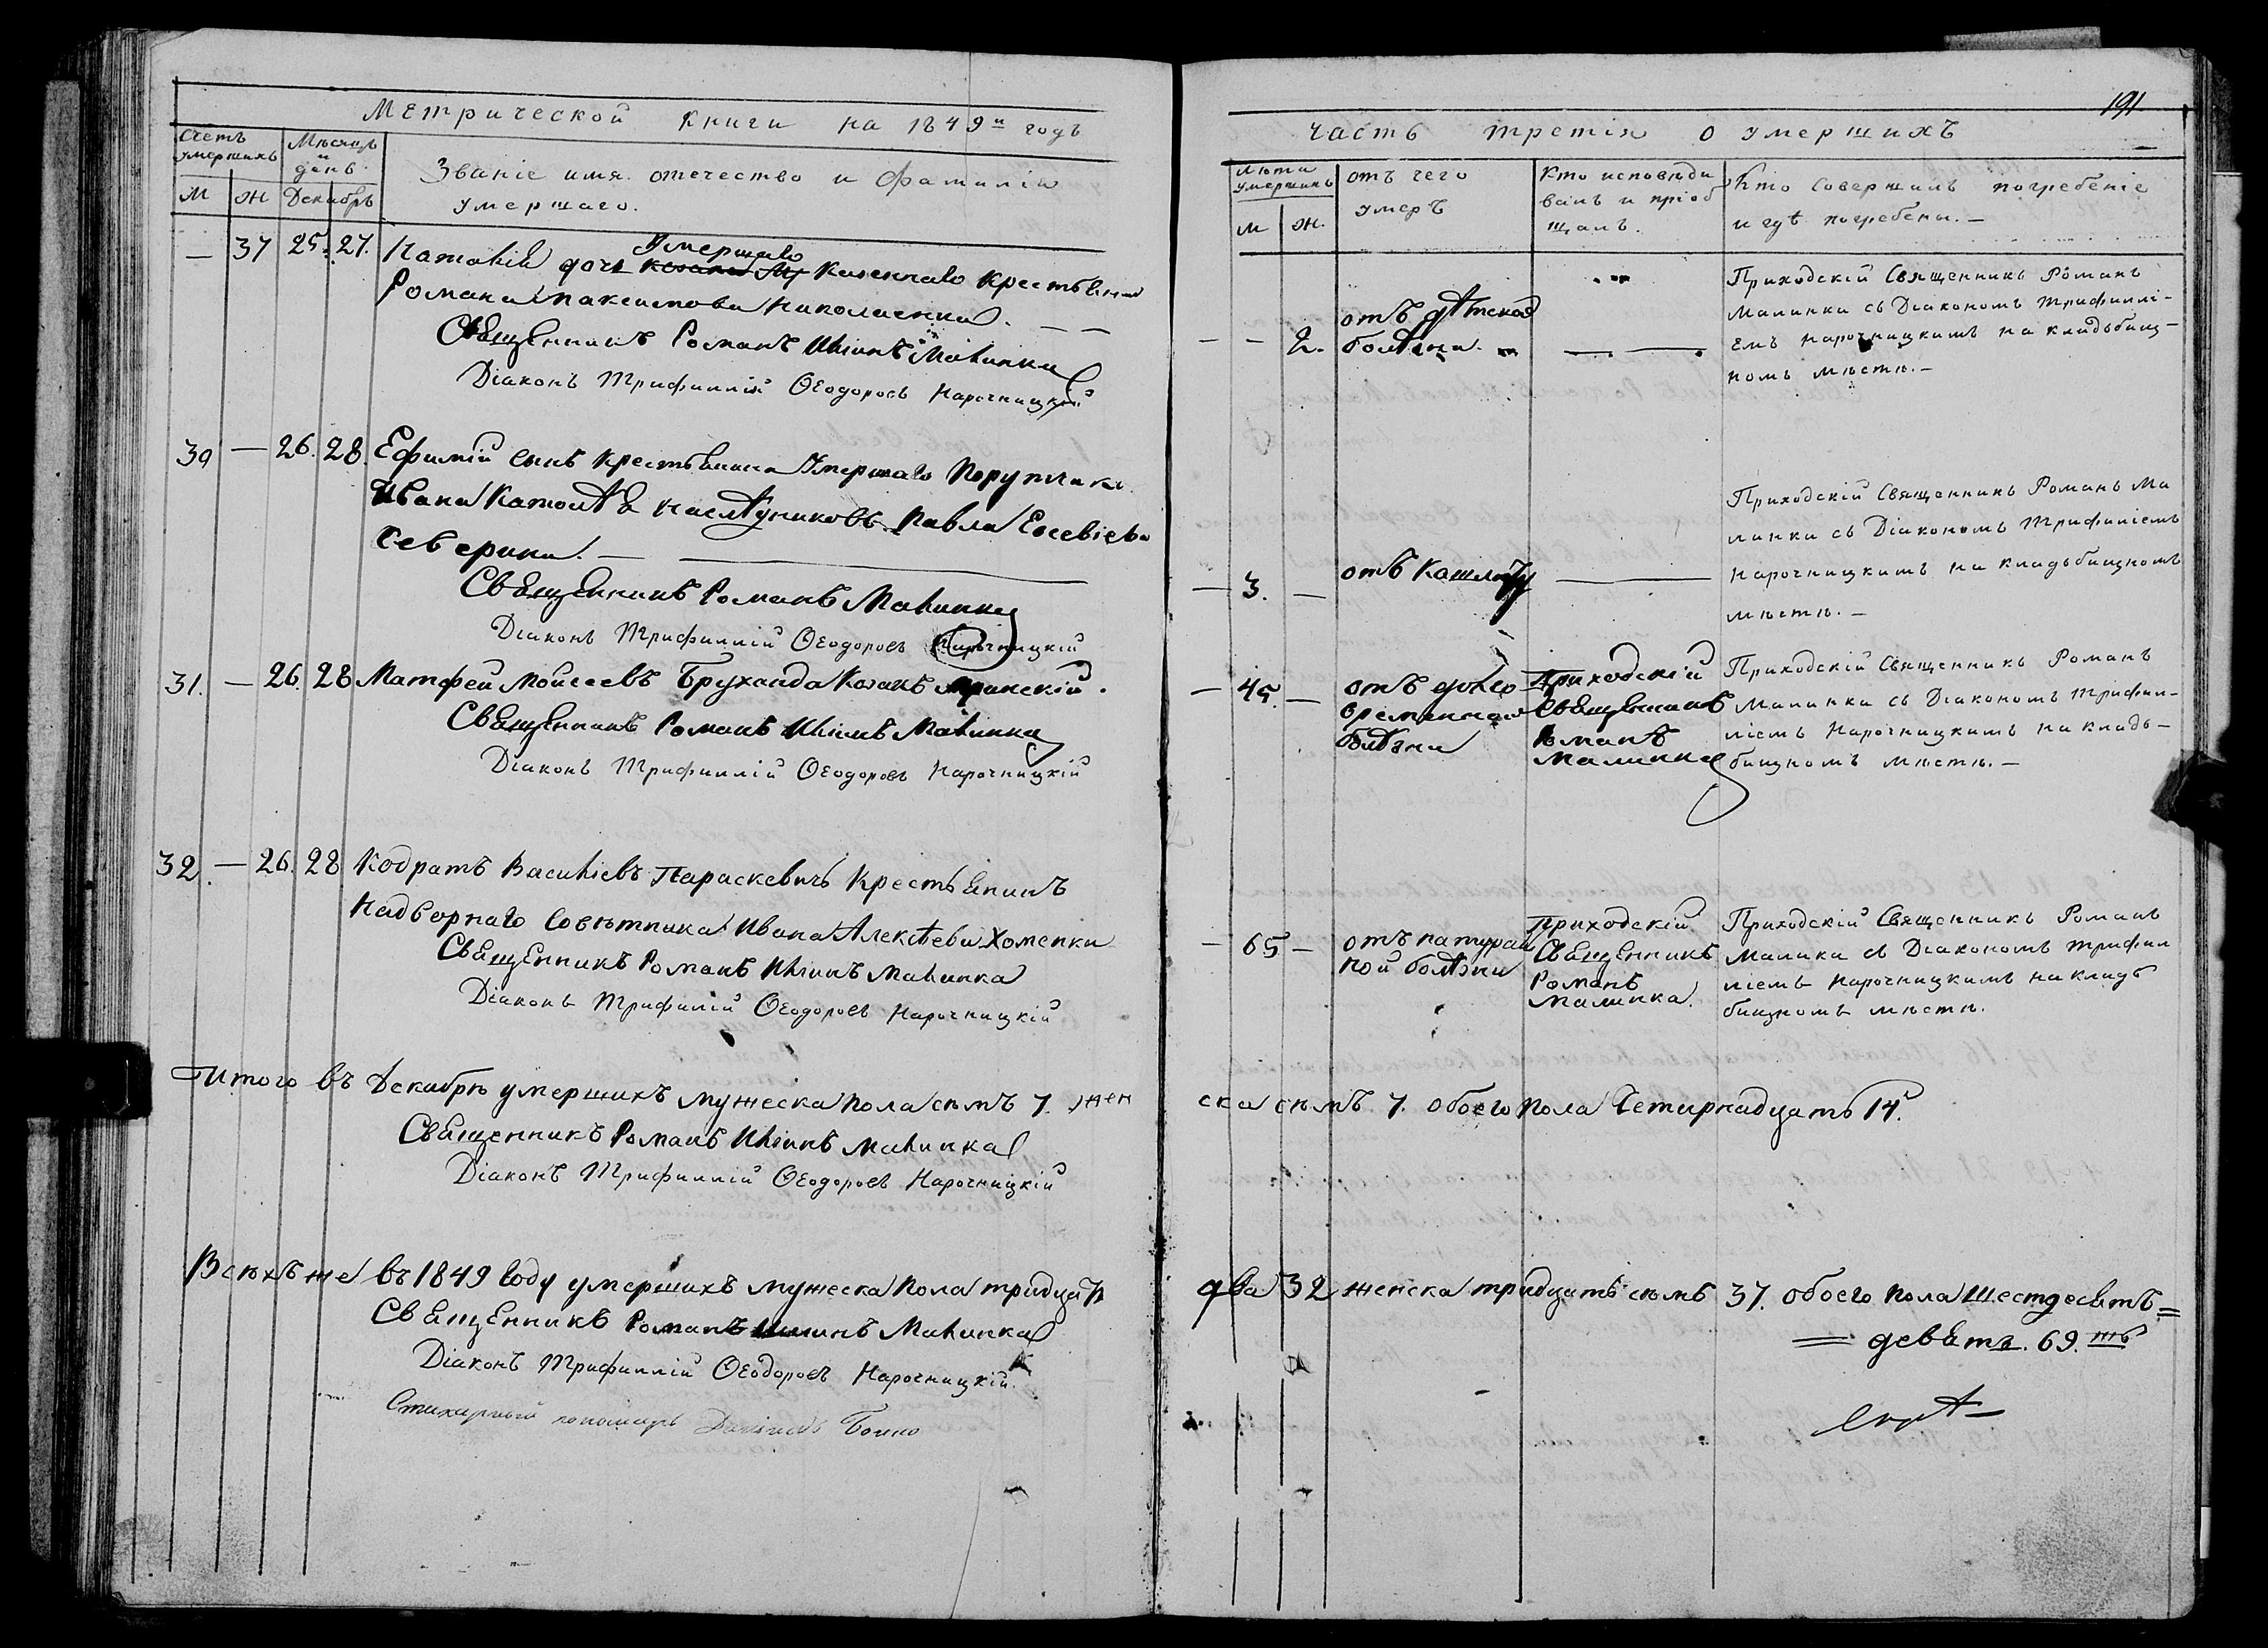 Метрической книги на 1849й годъ
Счетъ умершихъ
Мѣсяцъ и день
Званіе имя. отечество и фамилія
умершаго.
М Ж Декабрь
— 37 25. 27. Наталія дочь Умершаго Казеннаго крестьянина
Романа Максимова Николаенка. — —
Священникъ Романъ Иліинъ Малинка
Діаконъ Трифиллій Ѳеодоровъ Нарочницкій
30 — 26. 28. Ефимій сынъ крестьянина Умершаго Порутчика
Ивана наслѣдниковъ. Павла Евсевіева
Северина. —
Священникъ Романъ Малинка
Діаконъ Трифиллій Ѳеодоровъ Нарочницкій
31. — 26. 28 Матфей Моисеевъ Бруханда Козакъ
Священникъ Романъ Иліинъ Малинка
Діаконъ Трифиллій Ѳеодоровъ Нарочницкій
32. — 26. 28 Кодратъ Василіевъ Параскевичъ Крестьянинъ
Надворнаго Совѣтника Ивана Алексѣева Хоменки
Священникъ Романъ Иліинъ Малинка
Діаконъ Трифилій Ѳеодоровъ Нарочницкій
Итого въ Декабрѣ умершихъ мужеска пола сѣмъ 7. жен
Священникъ Романъ Иліинъ Малинка
Діаконъ Трифиллій Ѳеодоровъ Нарочницкій
Всѣхъ же въ 1849 году умершихъ мужеска пола тридцать
Священникъ Романъ Иліинъ Малинка
Діаконъ Трифиллій Ѳеодоровъ Нарочницкій.
Стихарный пономарь Бойко
191
часть третія о умершихъ
лѣта умершихъ
отъ чего
умеръ
Кто исповѣды
валъ и пріоб
щалъ.
Кто совершилъ погребеніе
и гдѣ погребены. —
М Ж.
— — 2. отъ дѣтской
болѣзни.
Приходскій Священникъ Романъ
Малинка съ Діакономъ Трифиллі-
емъ Нарочницкимъ на кладьбищ-
номъ мѣстѣ. —
— 3. — отъ Кашлю
Приходскій Священникъ Романъ Ма
линка съ Діакономъ Трифиліемъ
Нарочницкимъ на кладьбищномъ
мѣстѣ. —
— 45. — отъ долго
временной
болѣзни
Приходскій
Священникъ
Романъ
Малинка
Приходскій Священникъ Романъ
Малинка съ Діакономъ Трифил-
ліемъ Нарочницкимъ на кладь-
бищномъ мѣстѣ. —
— 65 — отъ натураль
ной болѣзни
Приходскій
Священникъ
Романъ
Малинка.
Приходскій Священникъ Романъ
Малинка съ Діакономъ Трифил
ліемъ Нарочницкимъ на кладь
бищномъ мѣстѣ.
ска сѣмъ 7. обоего пола Четирнадцать 14.
два 32 женска тридцать сѣмъ 37. обоего пола шестдесятъ=
= девять. 69. ть